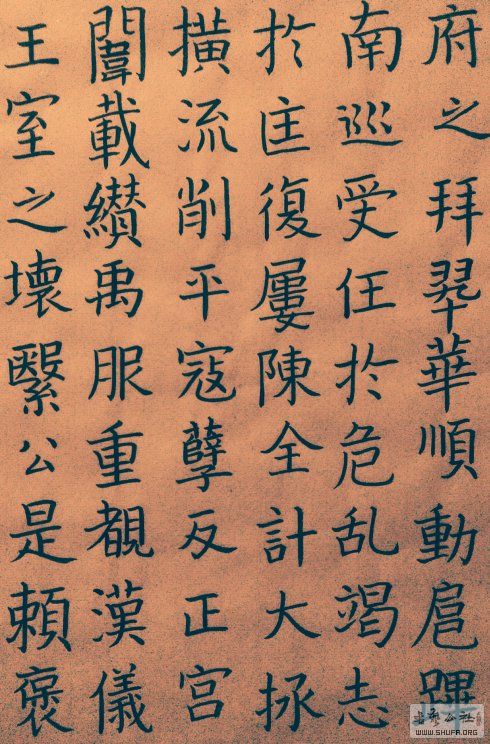 府之拜翠華順動扈蹕
南巡受任於危乱竭志
於匡復屢陳全計大拯
横流削平寇孽反正宮
闈載纘禹服重覩漢儀
王室之壞繄公是賴褒
书法公社
WWW.SHUFA.ORG